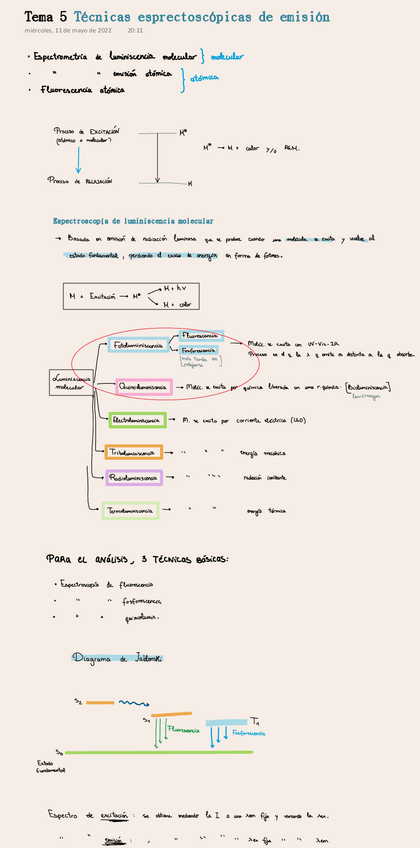 Tema 5 Técnicas esprectoscópicas de emisión
miércoles, 11 de mayo de 2022 20:11
• Espectrometría de luminiscencia molecular } molecular
• " " emisión atómica } atómica
• Fluorescencia atómica
Proceso de EXCITACIÓN
(atómico o molecular)
M*
M* → M + calor y/o REM.
Proceso de RELAJACIÓN
M
Espectroscopía de luminiscencia molecular
→ Basada en emisión de radiación luminosa que se produce cuando una molécula se excita y vuelve al
estado fundamental, perdiendo el exceso de energía en forma de fotones.
M + Excitación → M*
M + hν
M + calor
Luminiscencia
molecular
Fotoluminiscencia
Fluorescencia
Fosforescencia
→ Moléc. se excita con UV-Vis-IR
Proceso en q la λ q emite es distinta a la q absorbe.
Quimioluminiscencia → Moléc. se excita por química liberada en una r. química. [Bioluminiscencia]
luciérnagas
Electroluminiscencia → M. se excita por corriente eléctrica (LED)
Triboluminiscencia → " " energía mecánica
Radioluminiscencia → " " radiación ionizante
Termoluminiscencia → " " energía térmica
PARA EL ANÁLISIS, 3 TÉCNICAS BÁSICAS:
• Espectroscopía de fluorescencia
• " " fosforescencia
• " " quimiolumin.
Diagrama de Jablonski
S2
S1
T1
Fluorescencia
Fosforescencia
S0
Estado
fundamental
Espectro de excitación: se obtiene midiendo la I a una λem fija y variando la λex.
" " emisión: " " " " " λex fija " " λem